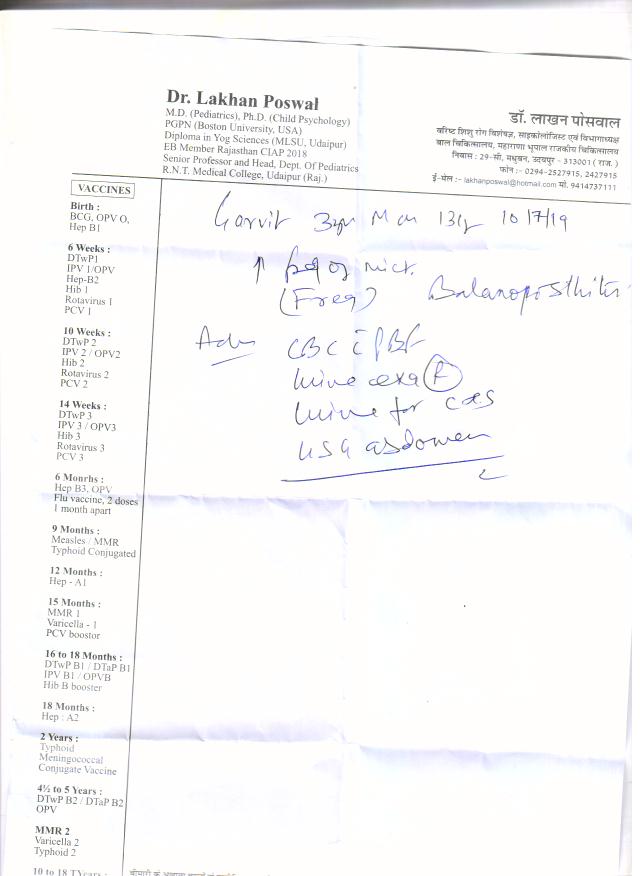 Dr. Lakhan Poswal
M.D. (Pediatrics), Ph.D. (Child Psychology)
PGPN (Boston University, USA)
Diploma in Yog Sciences (MLSU, Udaipur)
EB Member Rajasthan CIAP 2018
Senior Professor and Head, Dept. Of Pediatrics
R.N.T. Medical College, Udaipur (Raj.)
डॉ. लाखन पोसवाल
वरिष्ठ शिशु रोग विशेषज्ञ, साइकोलॉजिस्ट एवं विभागाध्यक्ष
बाल चिकित्सालय, महाराणा भूपाल राजकीय चिकित्सालय
निवास : 29-सी, मधुबन, उदयपुर - 313001 ( राज. )
फोन :- 0294-2527915, 2427915
ई-मेल :- lakhanposwal@hotmail.com मो. 9414737111
VACCINES
Birth :
BCG, OPV O,
Hep B1
6 Weeks :
DTwP1
IPV 1/OPV
Hep-B2
Hib 1
Rotavirus 1
PCV 1
10 Weeks :
DTwP 2
IPV 2 / OPV2
Hib 2
Rotavirus 2
PCV 2
14 Weeks :
DTwP 3
IPV 3 / OPV3
Hib 3
Rotavirus 3
PCV 3
6 Monrhs :
Hep B3, OPV
Flu vaccine, 2 doses
1 month apart
9 Months :
Measles / MMR
Typhoid Conjugated
12 Months :
Hep - A1
15 Months :
MMR 1
Varicella - 1
PCV boostor
16 to 18 Months :
DTwP B1 / DTaP B1
IPV B1 / OPVB
Hib B booster
18 Months :
Hep : A2
2 Years :
Typhoid
Meningococcal
Conjugate Vaccine
4½ to 5 Years :
DTwP B2 / DTaP B2
OPV
MMR 2
Varicella 2
Typhoid 2
10 to 18 TYears :
Garvit 3yr M 10/7/19
↑ of mict.
(Freq) Balanoposthitis
Adv CBC c̄ PBF
Urine exa (R)
Urine for C&S
USG abdomen